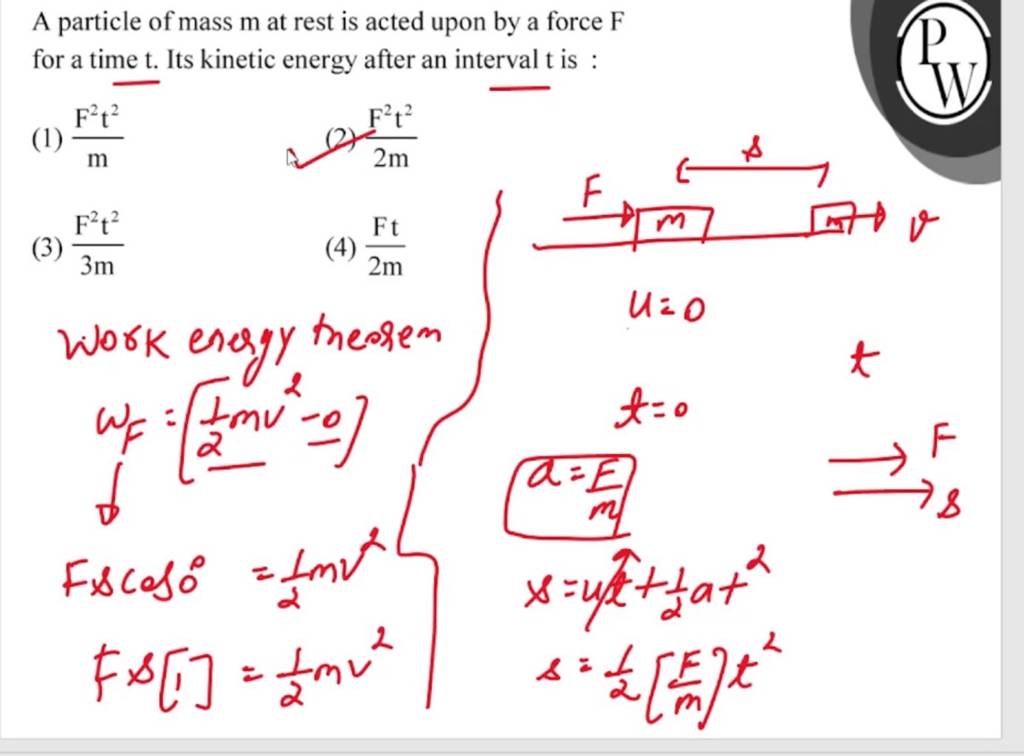 A particle of mass m at rest is acted upon by a force F
for a time t. Its kinetic energy after an interval t is :
(1) F²t²/m
(2) F²t²/2m
(3) F²t²/3m
(4) Ft/2m
PW
Work energy theorem
W_F = [1/2 mv² - 0]
F s cos 0° = 1/2 mv²
F s [1] = 1/2 mv²
s
F
m
m
v
u=0
t
t=0
F
s
a = F/m
s = ut + 1/2 at²
s = 1/2 [F/m] t²